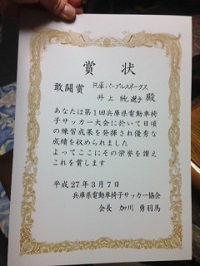 賞状
敢闘賞 兵庫パープルスポークス
井上 純 選手 殿
あなたは第1回兵庫県電動車椅
子サッカー大会に於いて日頃
の練習成果を発揮され優秀な
成績を収められました
よってここにその栄誉を讃え
これを賞します
平成27年3月7日
兵庫県電動車椅子サッカー協会
会長 加川 勇羽馬